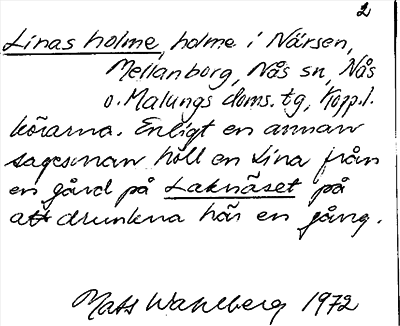 2
Linas holme, holme i Närsen,
Mellanborg, Nås sn, Nås
o. Malungs doms. tg, Kopp. l.
körarna. Enligt en annan
sagesman höll en Lina från
en gård på Laknäset på
att drunkna här en gång.
Mats Wahlberg 1972